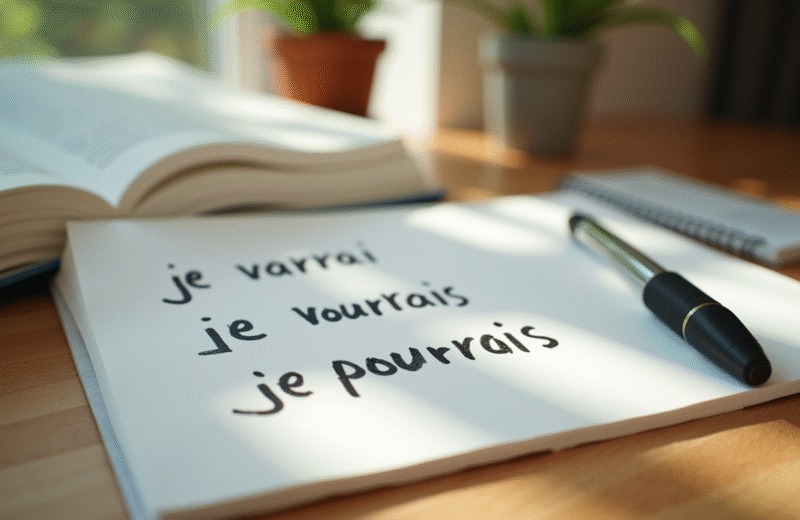 je varrai
je vourrais
je pourrais